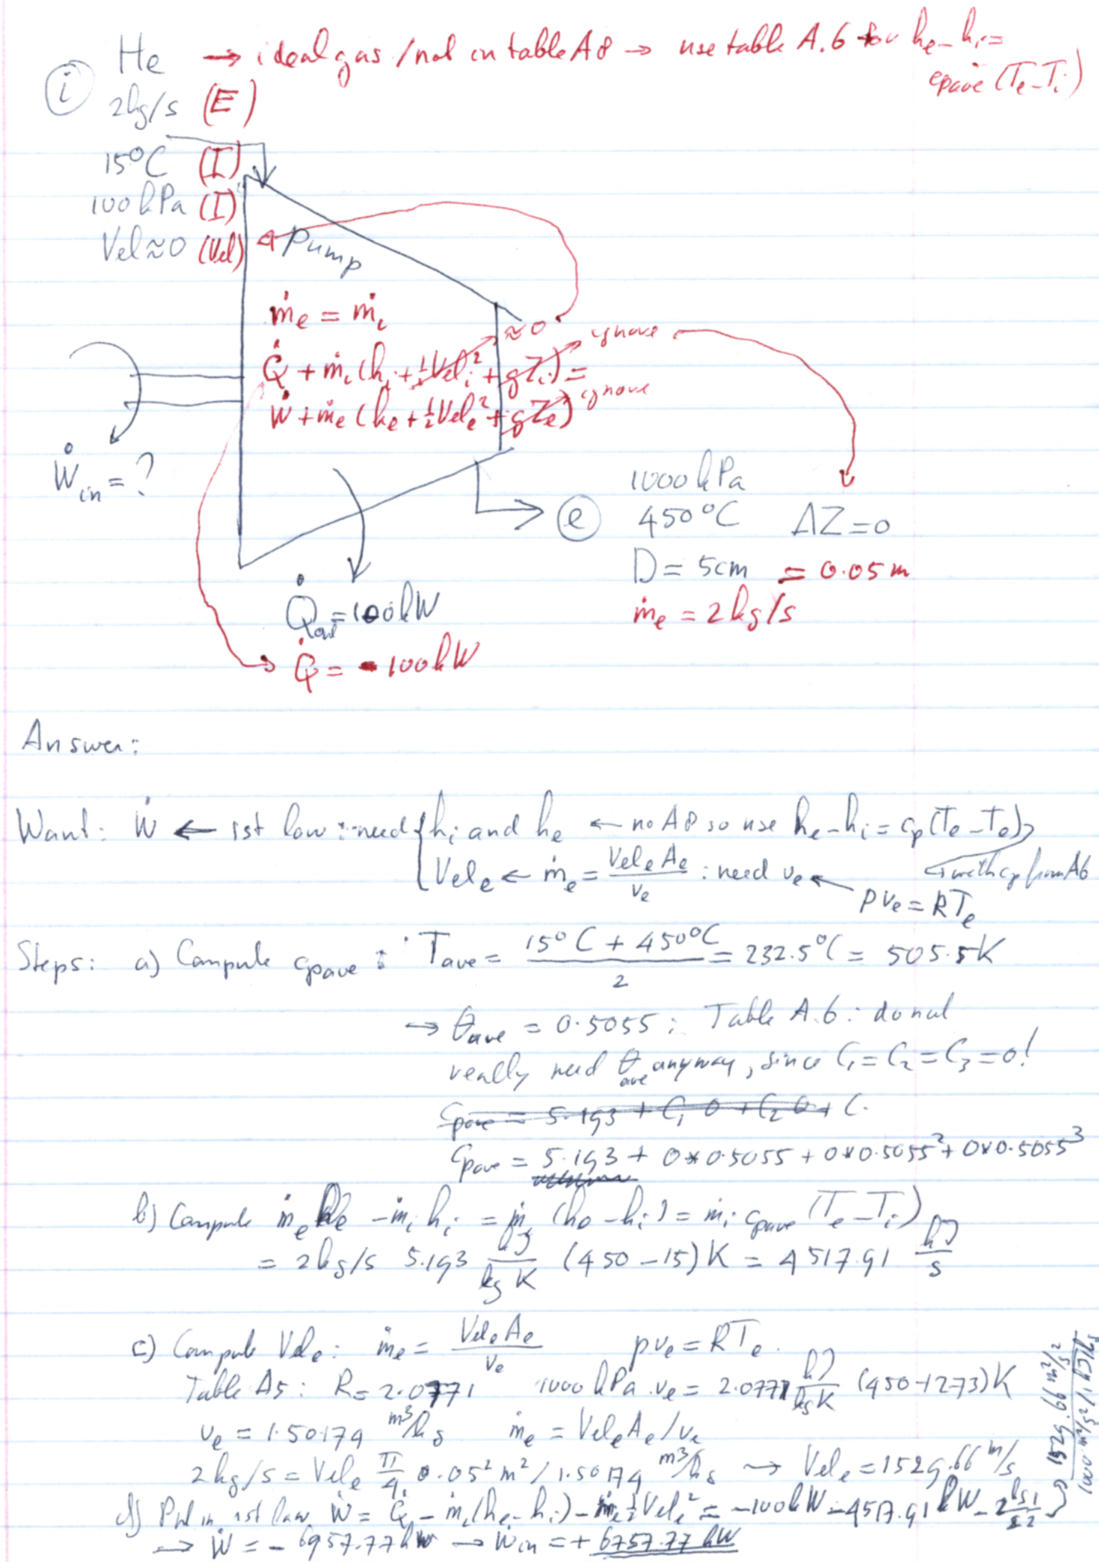 He → ideal gas / not in table A8 → use table A.6 for he - hi =
cpave (Te - Ti)
i
2 kg/s (E)
15°C (I)
100 kPa (I)
Vel ≈ 0 (Vel)
Pump
ṁe = ṁi
≈ 0
ignore
Q̇ + ṁi (hi + ½Veli² + gZi) =
Ẇ + ṁe (he + ½Vele² + gZe) ignore
Ẇin = ?
e
1000 kPa
450°C ΔZ = 0
D = 5cm = 0.05 m
ṁe = 2 kg/s
Q̇out = 100 kW
Q̇ = - 100 kW
Answer:
Want: Ẇ ← 1st law : need { hi and he ← no A8 so use he - hi = cp(Te - Te)
with cp from A6
Vele ← ṁe = Vele Ae / ve : need ve ← pve = RTe
Steps: a) Compute cpave : Tave = 15°C + 450°C / 2 = 232.5°C = 505.5 K
→ θave = 0.5055 ; Table A.6 : do not
really need θave anyway, since C1 = C2 = C3 = 0!
cpave = 5.193 + C1 θ + C2 θ + C.
cpave = 5.193 + 0*0.5055 + 0*0.5055² + 0*0.5055³
b) Compute ṁe he - ṁi hi = ṁi (he - hi) = ṁi cpave (Te - Ti)
= 2 kg/s 5.193 kJ/kg K (450 - 15) K = 4517.91 kJ/s
c) Compute Vele : ṁe = Vele Ae / ve pve = RTe.
Table A5 : R = 2.0771 1000 kPa ve = 2.0771 kJ/kg K (450+273)K
ve = 1.50174 m³/kg ṁe = Vele Ae / ve
2 kg/s = Vele π/4 0.05² m² / 1.50174 m³/kg → Vele = 1529.66 m/s
d) Put in 1st law Ẇ = Q̇ - ṁi(he - hi) - ṁi ½ Vele² = -100 kW - 4517.91 kW - 2 kg/s ½
1529.66² m²/s²
→ Ẇ = - 6957.77 kW → Ẇin = + 6757.77 kW